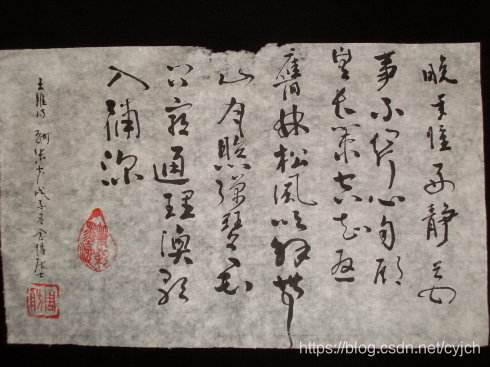 晚年惟好静万
事不関心自顾
無长策空知返
舊林松風吹解带
山月照弹琴君
问穷通理渔歌
入浦深
王維诗 戊子
https://blog.csdn.net/cyjch